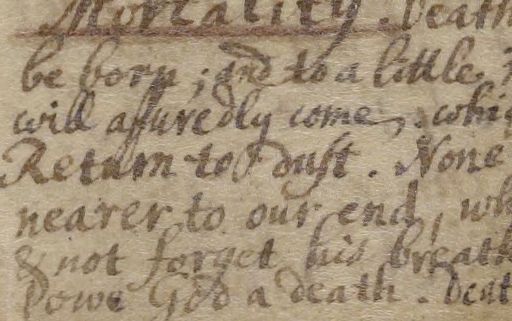 Mortality. Death
be born; and to a little
will assuredly come, whi
Return to dust. None
nearer to our end, wh
& not forget his breath
I owe God a death. Deat